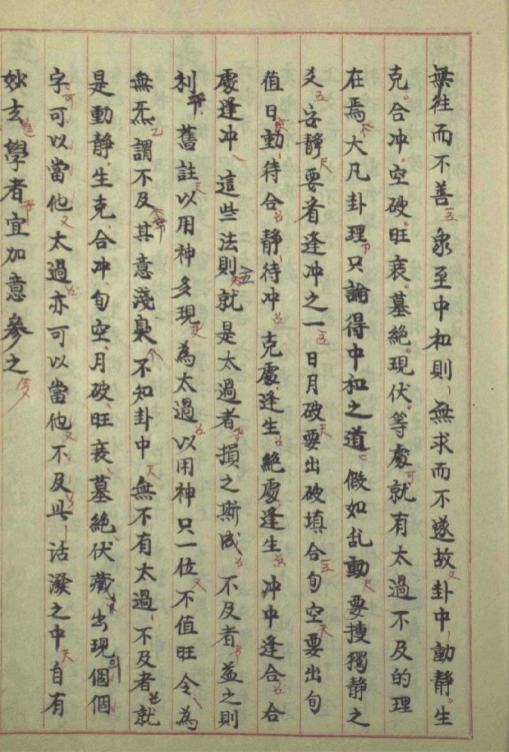 無往而不善求至中和則無求而不遂故卦中動靜生
克合冲空破旺衰墓絕現伏等處就有太過不及的理
在焉大凡卦理只論得中和之道假如乱動要搜獨靜之
爻安靜要看逢冲之一日月破要出破填合旬空要出旬
值日動待合靜待冲克處逢生絕處逢生冲中逢合合
處逢冲這些法則就是太過者損之斯成不及者益之則
利舊註以用神多現為太過以用神只一位不值旺令為
無炁謂不及其意淺臬不知卦中無不有太過不及者就
是動靜生克合冲旬空月破旺衰墓絕伏藏出現個個
字可以當他太過亦可以當他不及此活潑之中自有
妙玄學者宜加意參之